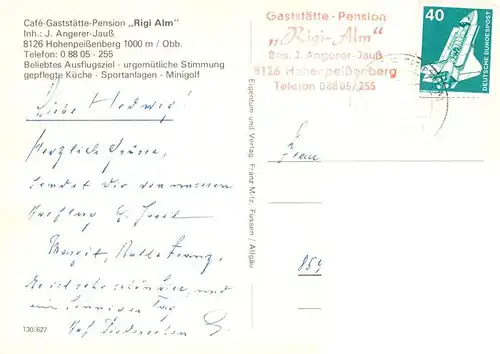 Café-Gaststätte-Pension „Rigi Alm"
Inh.: J. Angerer-Jauß
8126 Hohenpeißenberg 1000 m / Obb.
Telefon: 0 88 05 - 255
Beliebtes Ausflugsziel - urgemütliche Stimmung
gepflegte Küche - Sportanlagen - Minigolf
Liebe Hedwig!
Herzliche Grüsse,
sendet dir von unserem
Ausflug
Margit,
und
ein sonniger Tag
130/627
Eigentum und Verlag: Franz Milz, Füssen / Allgäu
Gaststätte - Pension
„Rigi-Alm"
Bes. J. Angerer-Jauß
8126 Hohenpeißenberg
Telefon 0 88 05/255
40
DEUTSCHE BUNDESPOST
Frau
859